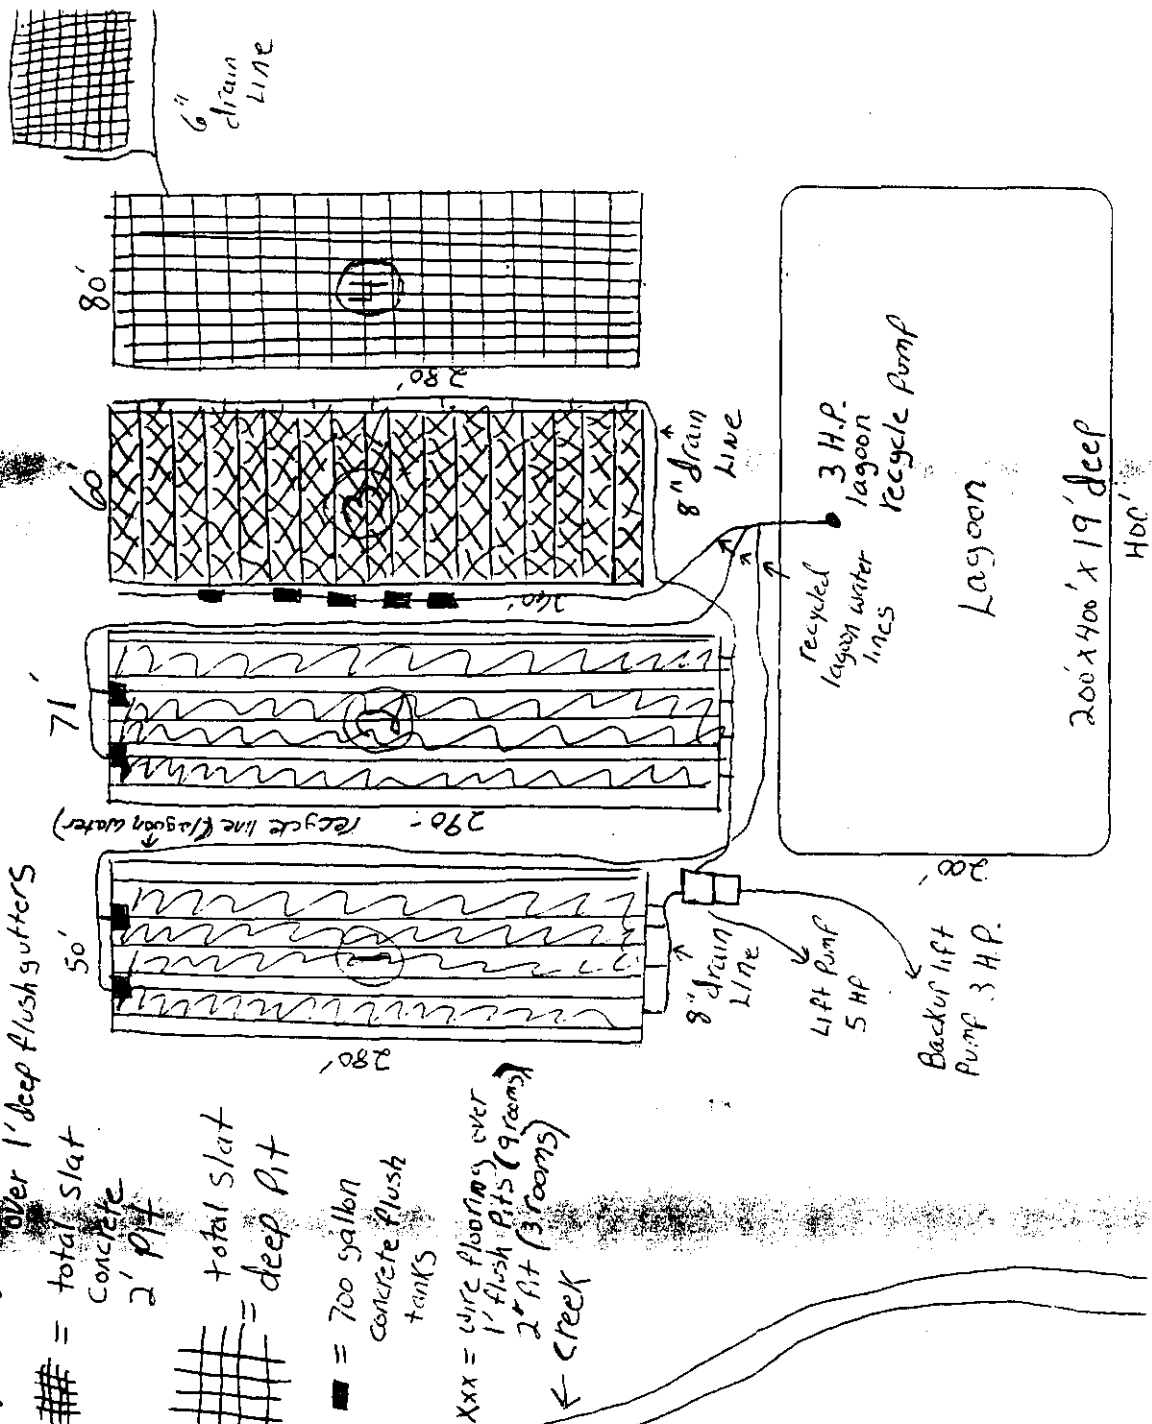 over 1' deep flush gutters
= total slat
concrete
2' pit
= total slat
deep pit
= 700 gallon
concrete flush
tanks
xxx = wire flooring over
1' flush pits (9 rooms)
2' pit (3 rooms)
← creek
50'
280'
1
recycle line (lagoon water)
71'
290'
2
60'
240'
3
80'
280'
4
6"
drain
LINE
8" drain
LINE
8" drain
LINE
Lift Pump
5 HP
Backup lift
Pump 3 H.P.
recycled
lagoon water
lines
3 H.P.
lagoon
recycle Pump
Lagoon
200' x 400' x 19' deep
400'
200'